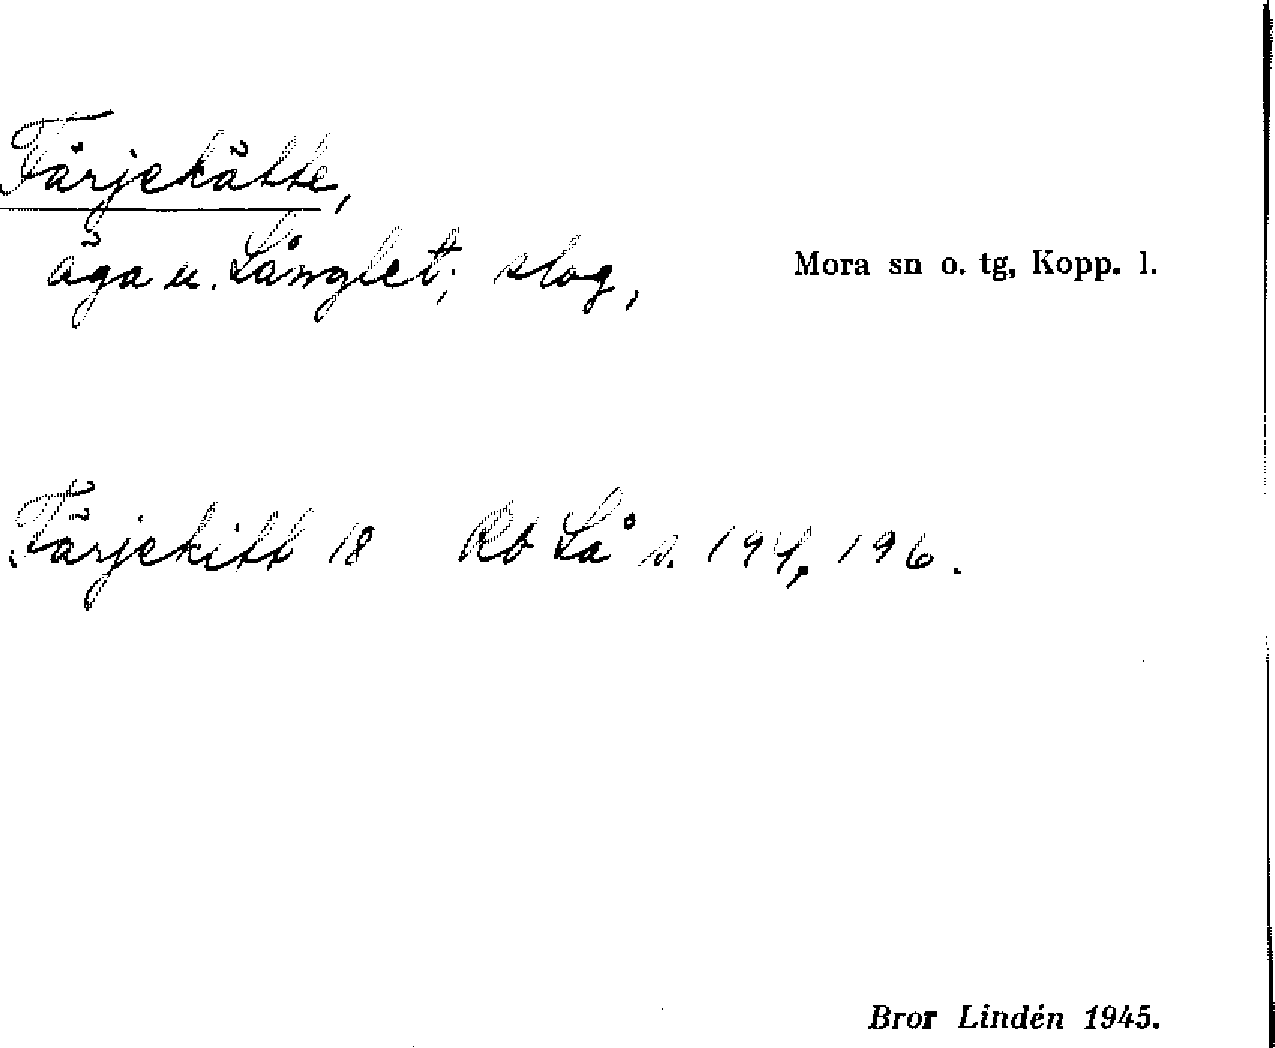 Färjekätte,
äga u. Långlet; slog,
Mora sn o. tg, Kopp. l.
Färjekitt 18 Rb Lå s. 194, 196.
Bror Lindén 1945.